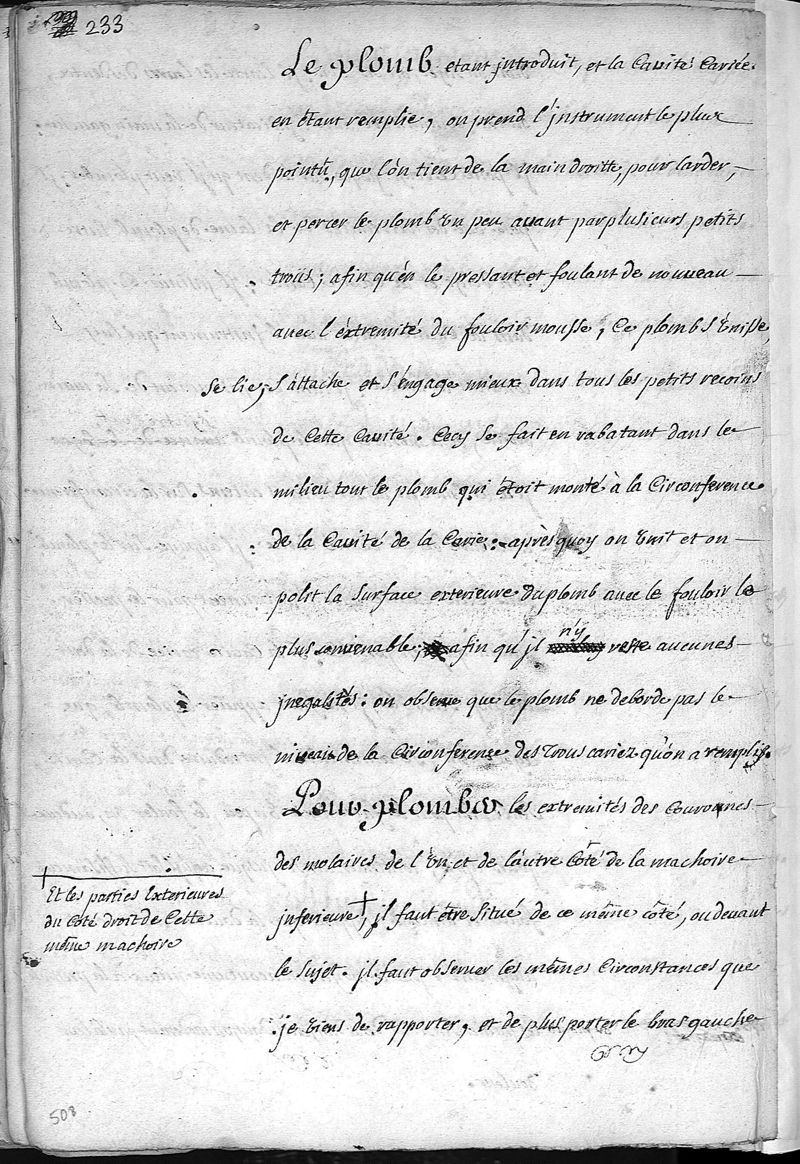 233
Le plomb etant introduit, et la Cauité Cariée
en êtant remplie, on prend l'jnstrument le plus
pointû, que lón tient de la main droitte, pour larder,
et percer le plomb Un peu auant par plusieurs petits
troüs; afin qu'en le pressant et foulant de nouueau
auec l'éxtremité du fouloir mousse, Ce plomb s'Ünisse,
se lie, s'attache et s'engage mieux dans tous les petits recoins
de Cette Cauité. Cecy se fait en rabatant dans le
milieu tout le plomb qui êtoit monté à la Circonference
de la Cauité de la Carie: après quoy on Unit et on
polit la Surface exterieure du plomb auec le fouloir le
plus conuenable; afin qu'jl n'y reste aucunes
jnegalités: on obserue que le plomb ne deborde pas le
niueau de la Circonference des Trous cariez qu'on a remplis.
Pour plomber les extremités des Couronnes
des molaires de l'Un, et de l'autre Côté de la machoire
jnferieure†, jl faut être Situé de ce même côté, ou deuant
le Sujet. jl faut obseruer les mêmes Circonstances que
je Viens de rapporter, et de plus porter le bras gauche
† Et les parties Exterieures
du Côté droit de Cette
même machoire
508